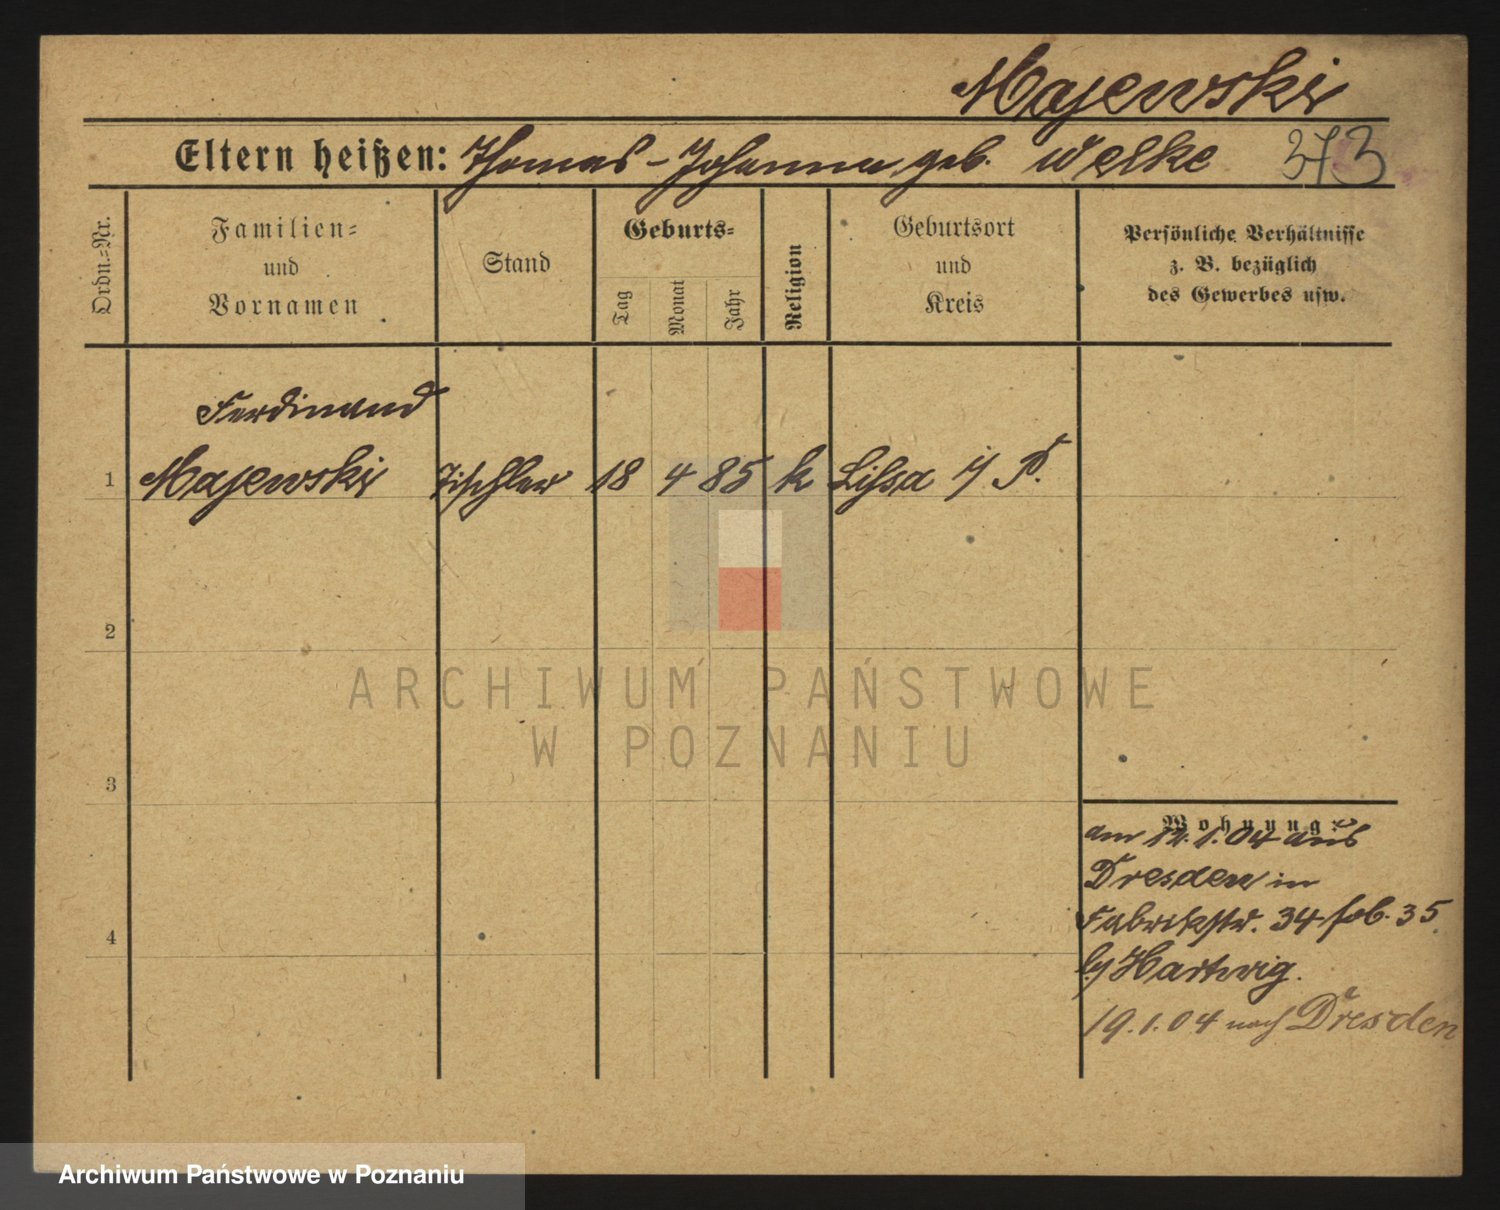 Majewski
Eltern heißen: Thomas - Johanna geb. Welke 373
Ordn.-Nr.
Familien-
und
Vornamen
Stand
Geburts-
Tag
Monat
Jahr
Religion
Geburtsort
und
Kreis
Persönliche Verhältnisse
z. B. bezüglich
des Gewerbes usw.
Ferdinand
1 Majewski Tischler 18 4 85 k Lissa i/ P.
2
3
4
Wohnung
am 12.1.04 aus
Dresden in
Fabrikstr. 34 fob. 35
b/ Hartwig.
19.1.04 nach Dresden
ARCHIWUM PAŃSTWOWE
W POZNANIU
Archiwum Państwowe w Poznaniu